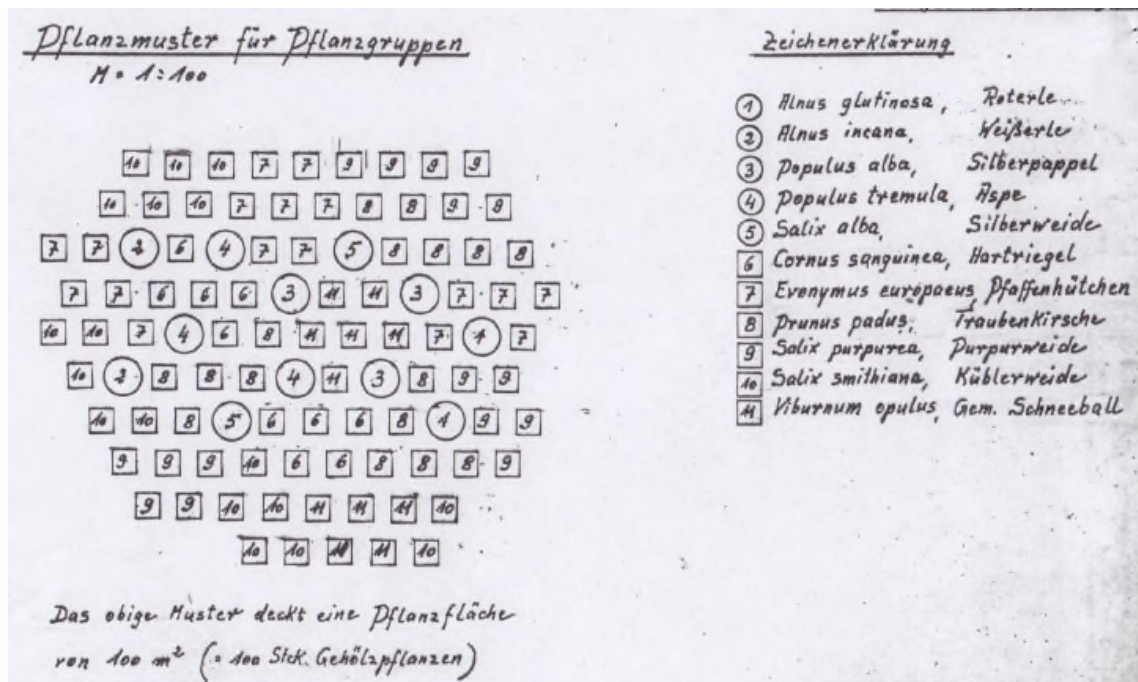 Pflanzmuster für Pflanzgruppen
M = 1:100
10 10 10 7 7 9 9 9 9
10 10 10 7 7 7 8 8 9 9
7 7 2 6 4 7 7 5 8 8 8 8
7 7 6 6 6 3 11 11 3 7 7 7
10 10 7 4 6 8 11 11 11 7 1 7
10 2 8 8 8 4 11 3 8 9 9
10 10 8 5 6 6 6 8 1 9 9
9 9 9 10 6 6 8 8 8 9
9 9 10 10 11 11 11 10
10 10 11 11 10
Das obige Muster deckt eine Pflanzfläche
von 100 m² (= 100 Stck. Gehölzpflanzen)
Zeichenerklärung
1 Alnus glutinosa, Roterle
2 Alnus incana, Weißerle
3 Populus alba, Silberpappel
4 Populus tremula, Aspe
5 Salix alba, Silberweide
6 Cornus sanguinea, Hartriegel
7 Evonymus europaeus, Pfaffenhütchen
8 Prunus padus, Traubenkirsche
9 Salix purpurea, Purpurweide
10 Salix smithiana, Küblerweide
11 Viburnum opulus, Gem. Schneeball